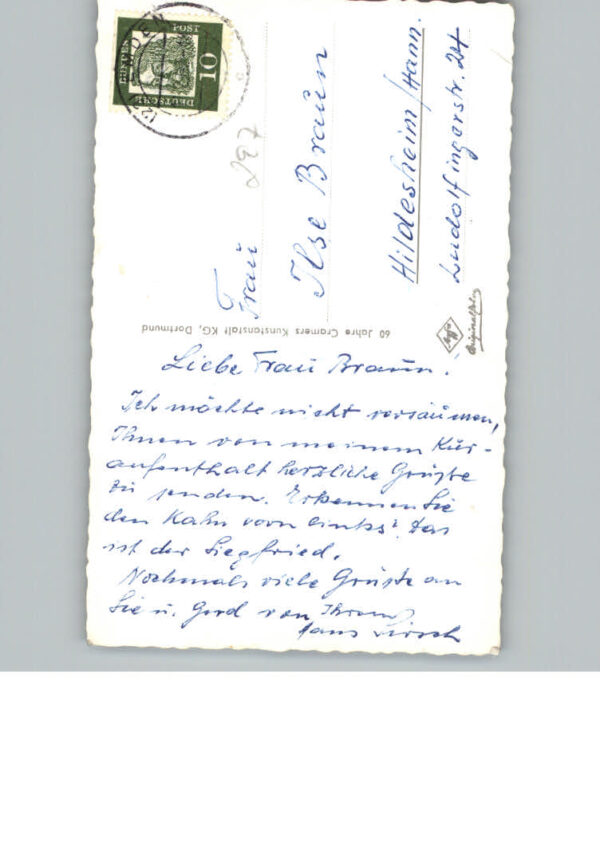 DEUTSCHE
LUFTPOST
10
297
Frau
Ilse Braun
Hildesheim/Hann.
Ludolfingerstr. 24
60 Jahre Cramers Kunstanstalt KG, Dortmund
Agfa
Originalfoto
Liebe Frau Braun.
Ich möchte nicht versäumen,
Ihnen von meinem Kur-
aufenthalt herzliche Grüße
zu senden. Erkennen Sie
den Kahn vorn links? Das
ist der Siegfried.
Nochmals viele Grüße an
Sie u. Gerd von Ihrem
Hans